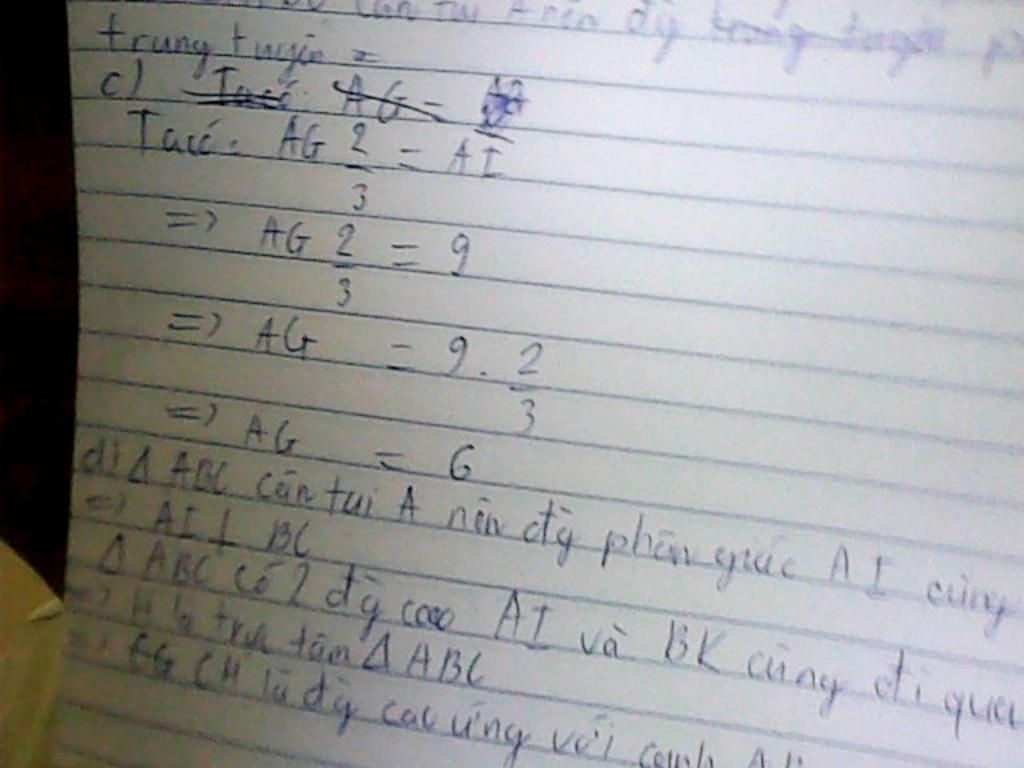 cân tại A nên đg
trung tuyến =
c) Ta có: AG =
Ta có: AG 2/3 = AI
=> AG 2/3 = 9
=> AG = 9 . 2/3
=> AG = 6
d) Δ ABC cân tại A nên đg phân giác AI cũng
=> AI ⊥ BC
Δ ABC có 2 đg cao AI và BK cùng đi qua
=> H là trực tâm Δ ABC
=> CH là đg cao ứng với cạnh